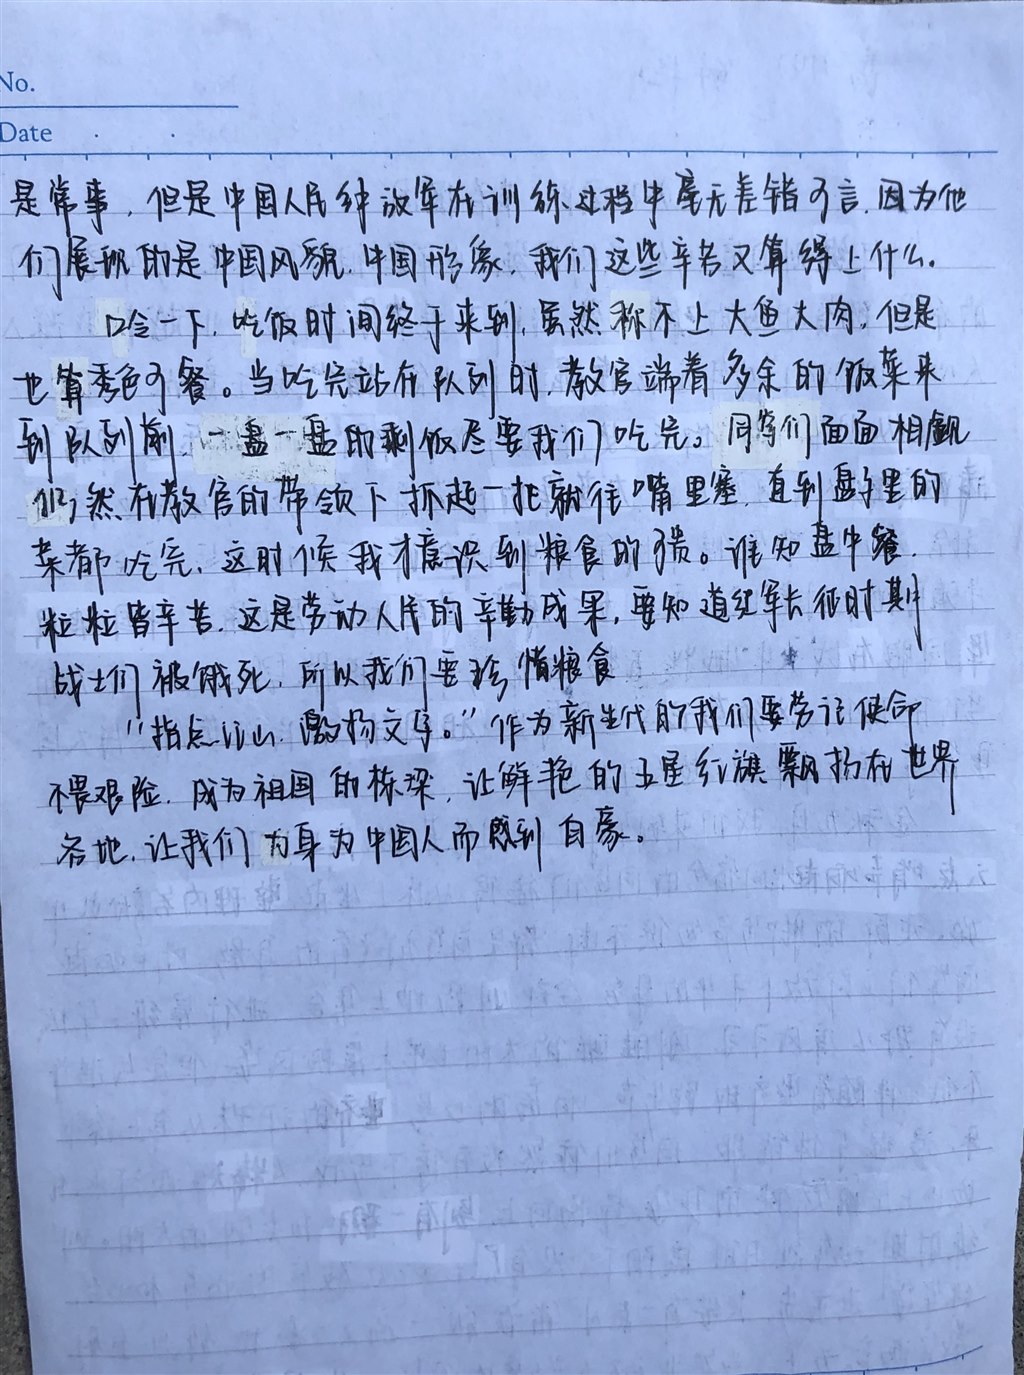 No.
Date
是常事，但是中国人民解放军在训练过程中毫无差错可言，因为他
们展现的是中国风貌，中国形象，我们这些辛苦又算得上什么。
口令一下，吃饭时间终于来到，虽然称不上大鱼大肉，但是
也算秀色可餐。当吃完站在队列时，教官端着多余的饭菜来
到队列前，一盘一盘的剩饭尽要我们吃完。同学们面面相觑
仍然在教官的带领下抓起一把就往嘴里塞，直到盘子里的
菜都吃完，这时候我才意识到粮食的可贵。谁知盘中餐，
粒粒皆辛苦，这是劳动人民的辛勤成果，要知道红军长征时期
战士们被饿死，所以我们要珍惜粮食
“指点江山，激扬文字。”作为新生代的我们要劳记使命
不畏艰险，成为祖国的栋梁，让鲜艳的五星红旗飘扬在世界
各地，让我们为身为中国人而感到自豪。